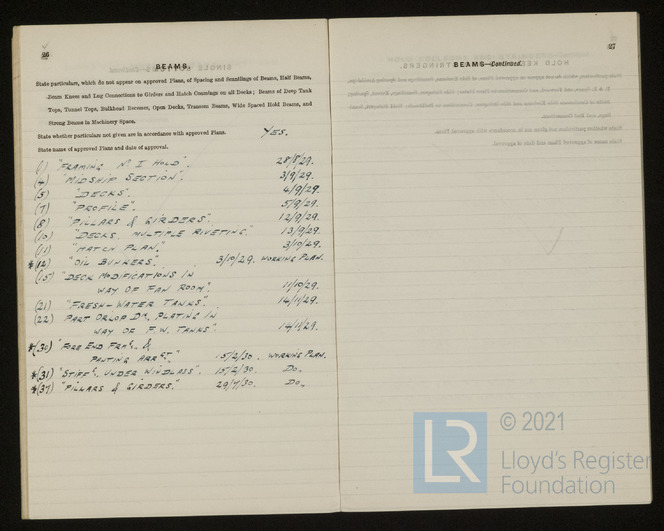 26
BEAMS.
State particulars, which do not appear on approved Plans, of Spacing and Scantlings of Beams, Half Beams,
Beam Knees and Lug Connections to Girders and Hatch Coamings on all Decks; Beams of Deep Tank
Tops, Tunnel Tops, Bulkhead Recesses, Open Decks, Transom Beams, Wide Spaced Hold Beams, and
Strong Beams in Machinery Space.
State whether particulars not given are in accordance with approved Plans. YES.
State name of approved Plans and date of approval.
(1) "FRAMING N. I HOLD". 28/8/29.
(4) "MIDSHIP SECTION". 3/9/29.
(5) "DECKS". 4/9/29.
(7) "PROFILE". 5/9/29.
(8) "PILLARS & GIRDERS". 12/9/29.
(10) "DECKS. MULTIPLE RIVETING." 13/9/29.
(11) "HATCH PLAN." 3/10/29.
*(12) "OIL BUNKERS". 3/10/29. WORKING PLAN.
(15) "DECK MODIFICATIONS IN
WAY OF FAN ROOM". 11/10/29.
(21) "FRESH-WATER TANKS". 14/11/29.
(22) PART ORLOP DK. PLATING IN
WAY OF F.W. TANKS". 14/11/29.
*(30) "FORE END FRAG. &
PANTING ARRGT." 15/2/30. WORKING PLAN.
*(31) "STIFFG. UNDER WINDLASS". 15/2/30. Do.
*(37) "PILLARS & GIRDERS." 29/7/30. Do.
27
BEAMS—Continued.
LR
© 2021
Lloyd's Register
Foundation